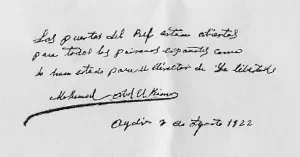 Las puertas del Rif estan abiertas
para todos los paisanos españoles como
lo han estado para el director de La libertad
Mohamed Abd el Krim
Aydir 2 de Agosto 1922